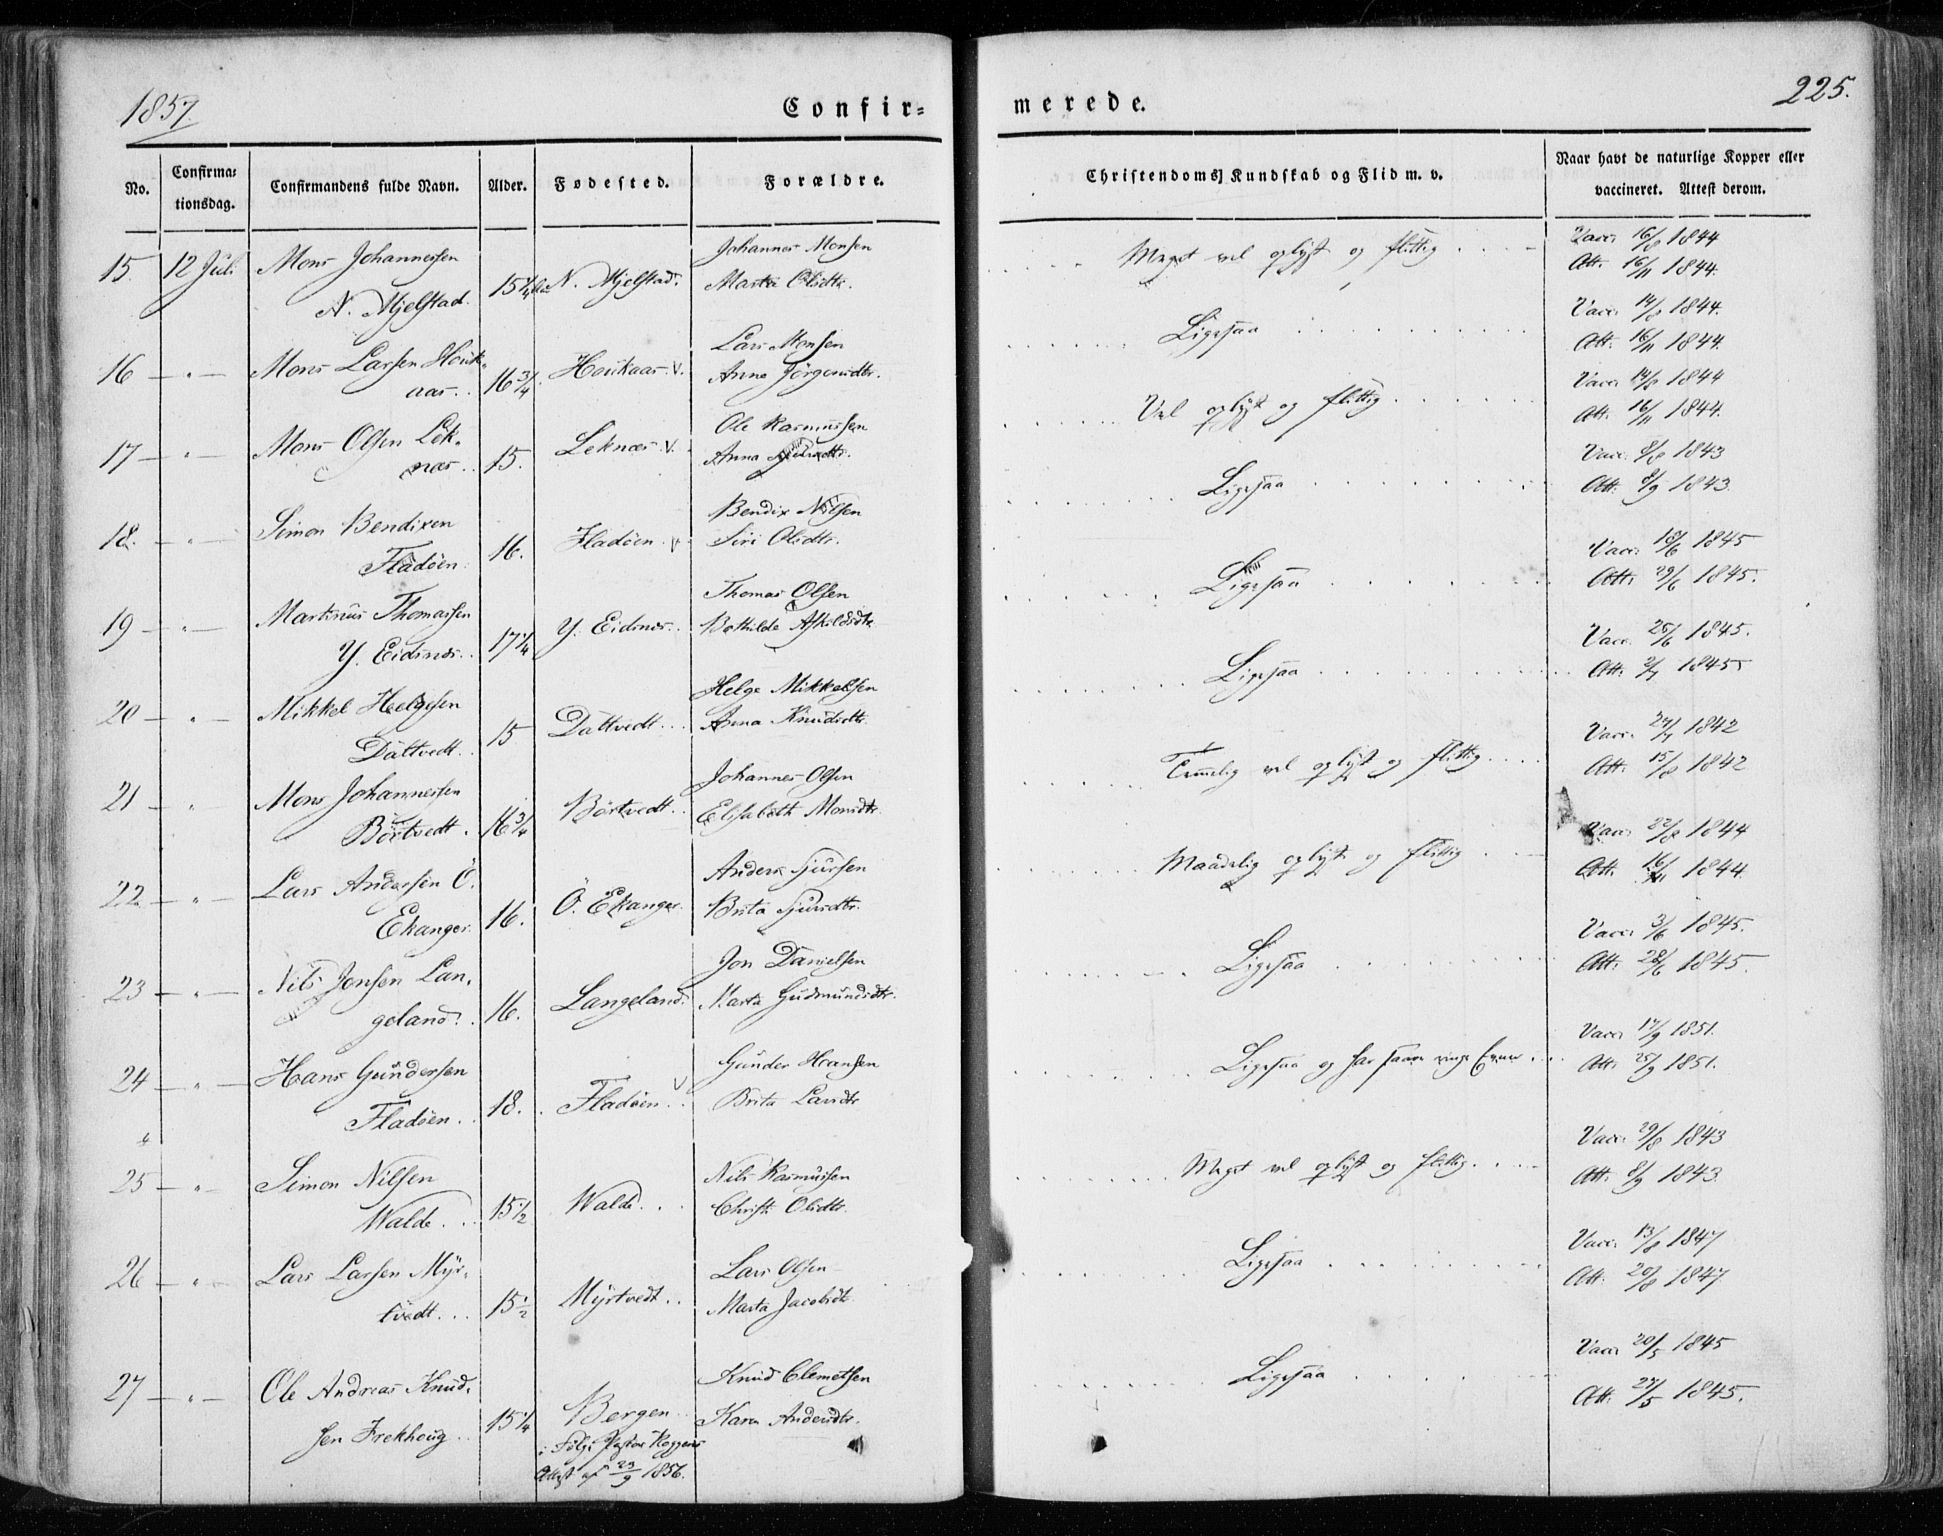 1857.
Confir=
merede.
225.
No.
Confirma=
tionsdag.
Confirmandens fulde Navn.
Alder.
Fødested.
Forældre.
Christendoms Kundskab og Flid m. v.
Naar havt de naturlige Kopper eller
vaccineret. Attest derom.
15. 12 Juli Mons Johannessen
N. Mjelstad. 15 1/4 N. Mjelstad.
Johannes Monsen
Marta Olsdtr.
Meget vel oplyst og flittig
Vacc. 16/8 1844
Att. 16/11 1844.
16 — " — Mons Larsen Houk-
aas. 16 3/4 Houkaas. v.
Lars Monsen
Anna Jörgensdtr.
Ligesaa
Vacc. 14/8 1844.
Att. 16/11 1844.
17 — " — Mons Olsen Lek-
næs. 15. Leknæs. v.
Ole Rasmussen
Anna
Vel oplyst og flittig
Vacc. 14/8 1844
Att. 16/11 1844.
18. — " — Simon Bendixen
Fladöen. 16. Fladöen. v.
Bendix Nilsen
Siri Olsdtr.
Ligesaa
Vacc. 8/8 1843
Att. 8/9 1843.
19 — " — Martinus Thomassen
Y. Eidsnes. 17 1/4 Y. Eidsnes.
Thomas Olsen
Bothilde Askildsdtr.
Ligesaa
Vacc. 18/6 1845
Att. 29/6 1845.
20 — " — Mikkel Helgesen
Dattvedt. 15 Dattvedt.
Helge Mikkelsen
Anna Knudsdtr.
Ligesaa
Vacc. 26/6 1845.
Att. 2/7 1845
21 — " Mons Johannessen
Börtvedt. 16 3/4 Börtvedt.
Johannes Olsen
Elisabeth Monsdtr.
Temmelig vel oplyst og flittig
Vacc. 27/7 1842
Att. 15/8 1842
22 — " — Lars Andersen Ö.
Ekanger. 16. Ö. Ekanger.
Anders Sjursen
Brita Sjursdtr.
Maadelig oplyst og flittig
Vacc. 22/8 1844
Att. 16/11 1844.
23 — " — Nils Jonsen Lan-
geland. 16. Langeland.
Jon Danielsen
Marta Gudmundsdtr.
Ligesaa
Vacc. 3/6 1845.
Att. 28/6 1845.
24 — " — Hans Gundersen
Fladöen. 18. Fladöen. v
Gunder Hansen
Brita Larsdtr
Ligesaa og har saare ringe Evner
Vacc. 17/9 1851.
Att. 25/9 1851.
25 — " — Simon Nilsen
Walde. 15 1/2 Walde.
Nils Rasmussen
Christi Olsdtr.
Meget vel oplyst og flittig.
Vacc. 29/8 1843
Att. 8/9 1843.
26 — " — Lars Larsen Myr-
tvedt. 15 1/2 Myrtvedt.
Lars Olsen
Marta Jacobsdtr.
Ligesaa
Vacc. 13/8 1847
Att. 20/8 1847
27 — " — Ole Andreas Knud-
sen Frekhoug. 15 1/4 Bergen
i Fölge Pastor
Attest af 23/9 1856.
Knud Clemetsen
Karen Andersdtr.
Ligesaa
Vacc. 20/5 1845
Att. 27/5 1845.